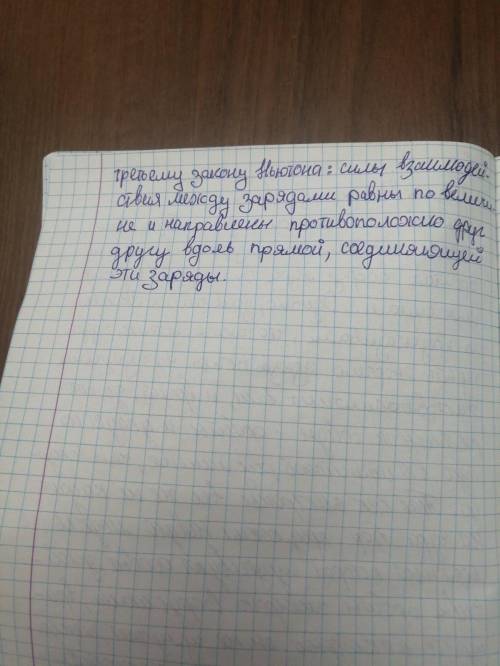 третьему закону Ньютона: силы взаимодей-
ствия между зарядами равны по величи
не и направлены противоположно друг
другу вдоль прямой, соединяющей
эти заряды.